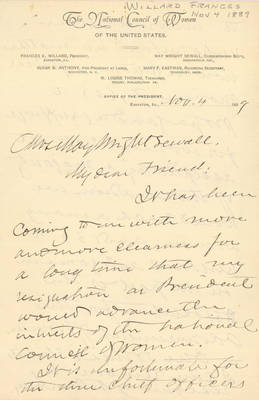 WILLARD FRANCES
NOV 4 1889
The National Council of Women
OF THE UNITED STATES.
FRANCES E. WILLARD, PRESIDENT,
EVANSTON, ILL.
MAY WRIGHT SEWALL, CORRESPONDING SEC'Y,
INDIANAPOLIS, IND.
SUSAN B. ANTHONY, VICE-PRESIDENT AT LARGE,
ROCHESTER, N. Y.
MARY F. EASTMAN, RECORDING SECRETARY,
TEWKSBURY, MASS.
M. LOUISE THOMAS, TREASURER,
OFFICE OF THE PRESIDENT
EVANSTON, ILL., Nov. 4 1889
Mrs. May Wright Sewall.
My dear Friend:
It has been
coming to me with more
and more clearness for
a long time that my
resignation as President
would advance the
interests of the National
Council of Women.
It is unfortunate for
the three chief officers